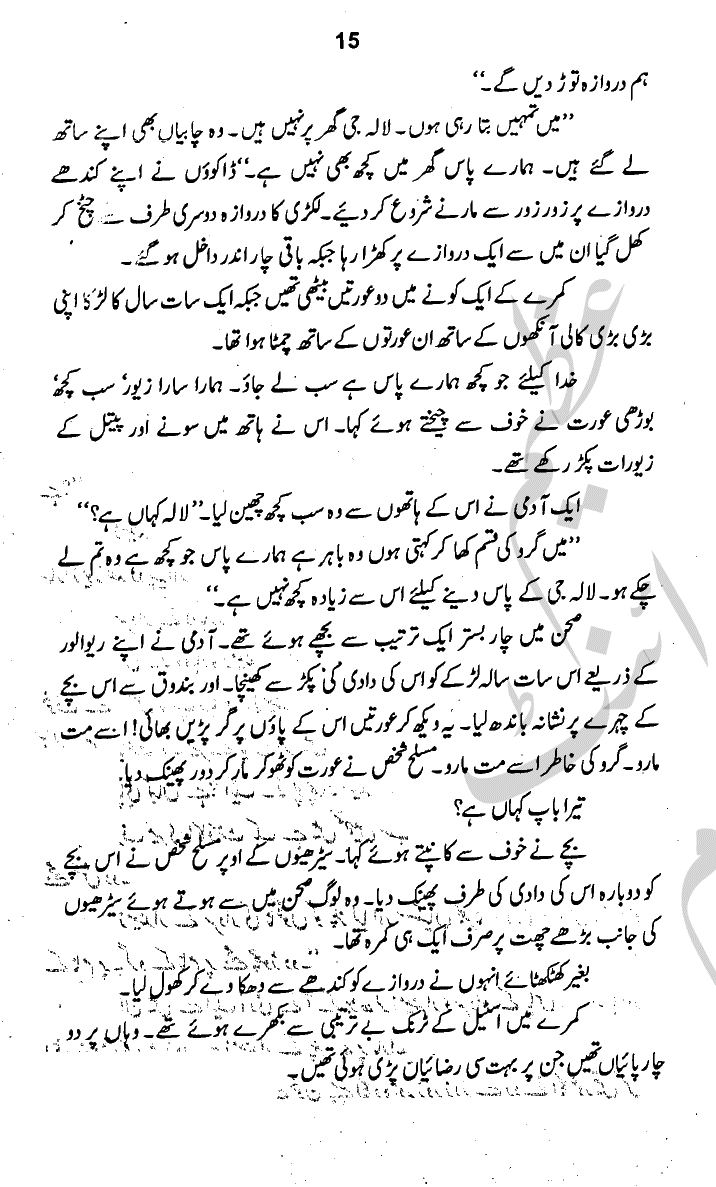 15
ہم دروازہ توڑ دیں گے۔“
”میں تمہیں بتا رہی ہوں۔ لالہ جی گھر پر نہیں ہیں۔ وہ چابیاں بھی اپنے ساتھ
لے گئے ہیں۔ ہمارے پاس گھر میں کچھ بھی نہیں ہے۔“ ڈاکوؤں نے اپنے کندھے
دروازے پر زور زور سے مارنے شروع کر دیئے۔ لکڑی کا دروازہ دوسری طرف سے چیخ کر
کھل گیا ان میں سے ایک دروازے پر کھڑا رہا جبکہ باقی چار اندر داخل ہو گئے۔
کمرے کے ایک کونے میں دو عورتیں بیٹھی تھیں جبکہ ایک سات سال کا لڑکا اپنی
بڑی بڑی کالی آنکھوں کے ساتھ ان عورتوں کے ساتھ چمٹا ہوا تھا۔
خدا کیلئے جو کچھ ہمارے پاس ہے سب لے جاؤ۔ ہمارا سارا زیور‘ سب کچھ‘
بوڑھی عورت نے خوف سے چیختے ہوئے کہا۔ اس نے ہاتھ میں سونے اور پیتل کے
زیورات پکڑ رکھے تھے۔
ایک آدمی نے اس کے ہاتھوں سے وہ سب کچھ چھین لیا۔ ”لالہ کہاں ہے؟“
”میں گرو کی قسم کھا کر کہتی ہوں وہ باہر ہے ہمارے پاس جو کچھ ہے وہ تم لے
چکے ہو۔ لالہ جی کے پاس دینے کیلئے اس سے زیادہ کچھ نہیں ہے۔“
صحن میں چار بستر ایک ترتیب سے بچھے ہوئے تھے۔ آدمی نے اپنے ریوالور
کے ذریعے اس سات سالہ لڑکے کو اس کی دادی کی پکڑ سے کھینچا۔ اور بندوق سے اس بچے
کے چہرے پر نشانہ باندھ لیا۔ یہ دیکھ کر عورتیں اس کے پاؤں پر گر پڑیں بھائی! اسے مت
مارو۔ گرو کی خاطر اسے مت مارو۔ مسلح شخص نے عورت کو ٹھوکر مار کر دور پھینک دیا۔
تیرا باپ کہاں ہے؟
بچے نے خوف سے کانپتے ہوئے کہا۔ سیڑھیوں کے اوپر مسلح شخص نے اس بچے
کو دوبارہ اس کی دادی کی طرف پھینک دیا۔ وہ لوگ صحن میں سے ہوتے ہوئے سیڑھیوں
کی جانب بڑھے چھت پر صرف ایک ہی کمرہ تھا۔
بغیر کھٹکھٹائے انہوں نے دروازے کو کندھے سے دھکا دے کر کھول لیا۔
کمرے میں اسٹیل کے ٹرنک بے ترتیبی سے بکھرے ہوئے تھے۔ وہاں پر دو
چارپائیاں تھیں جن پر بہت سی رضائیاں پڑی ہوئی تھیں۔